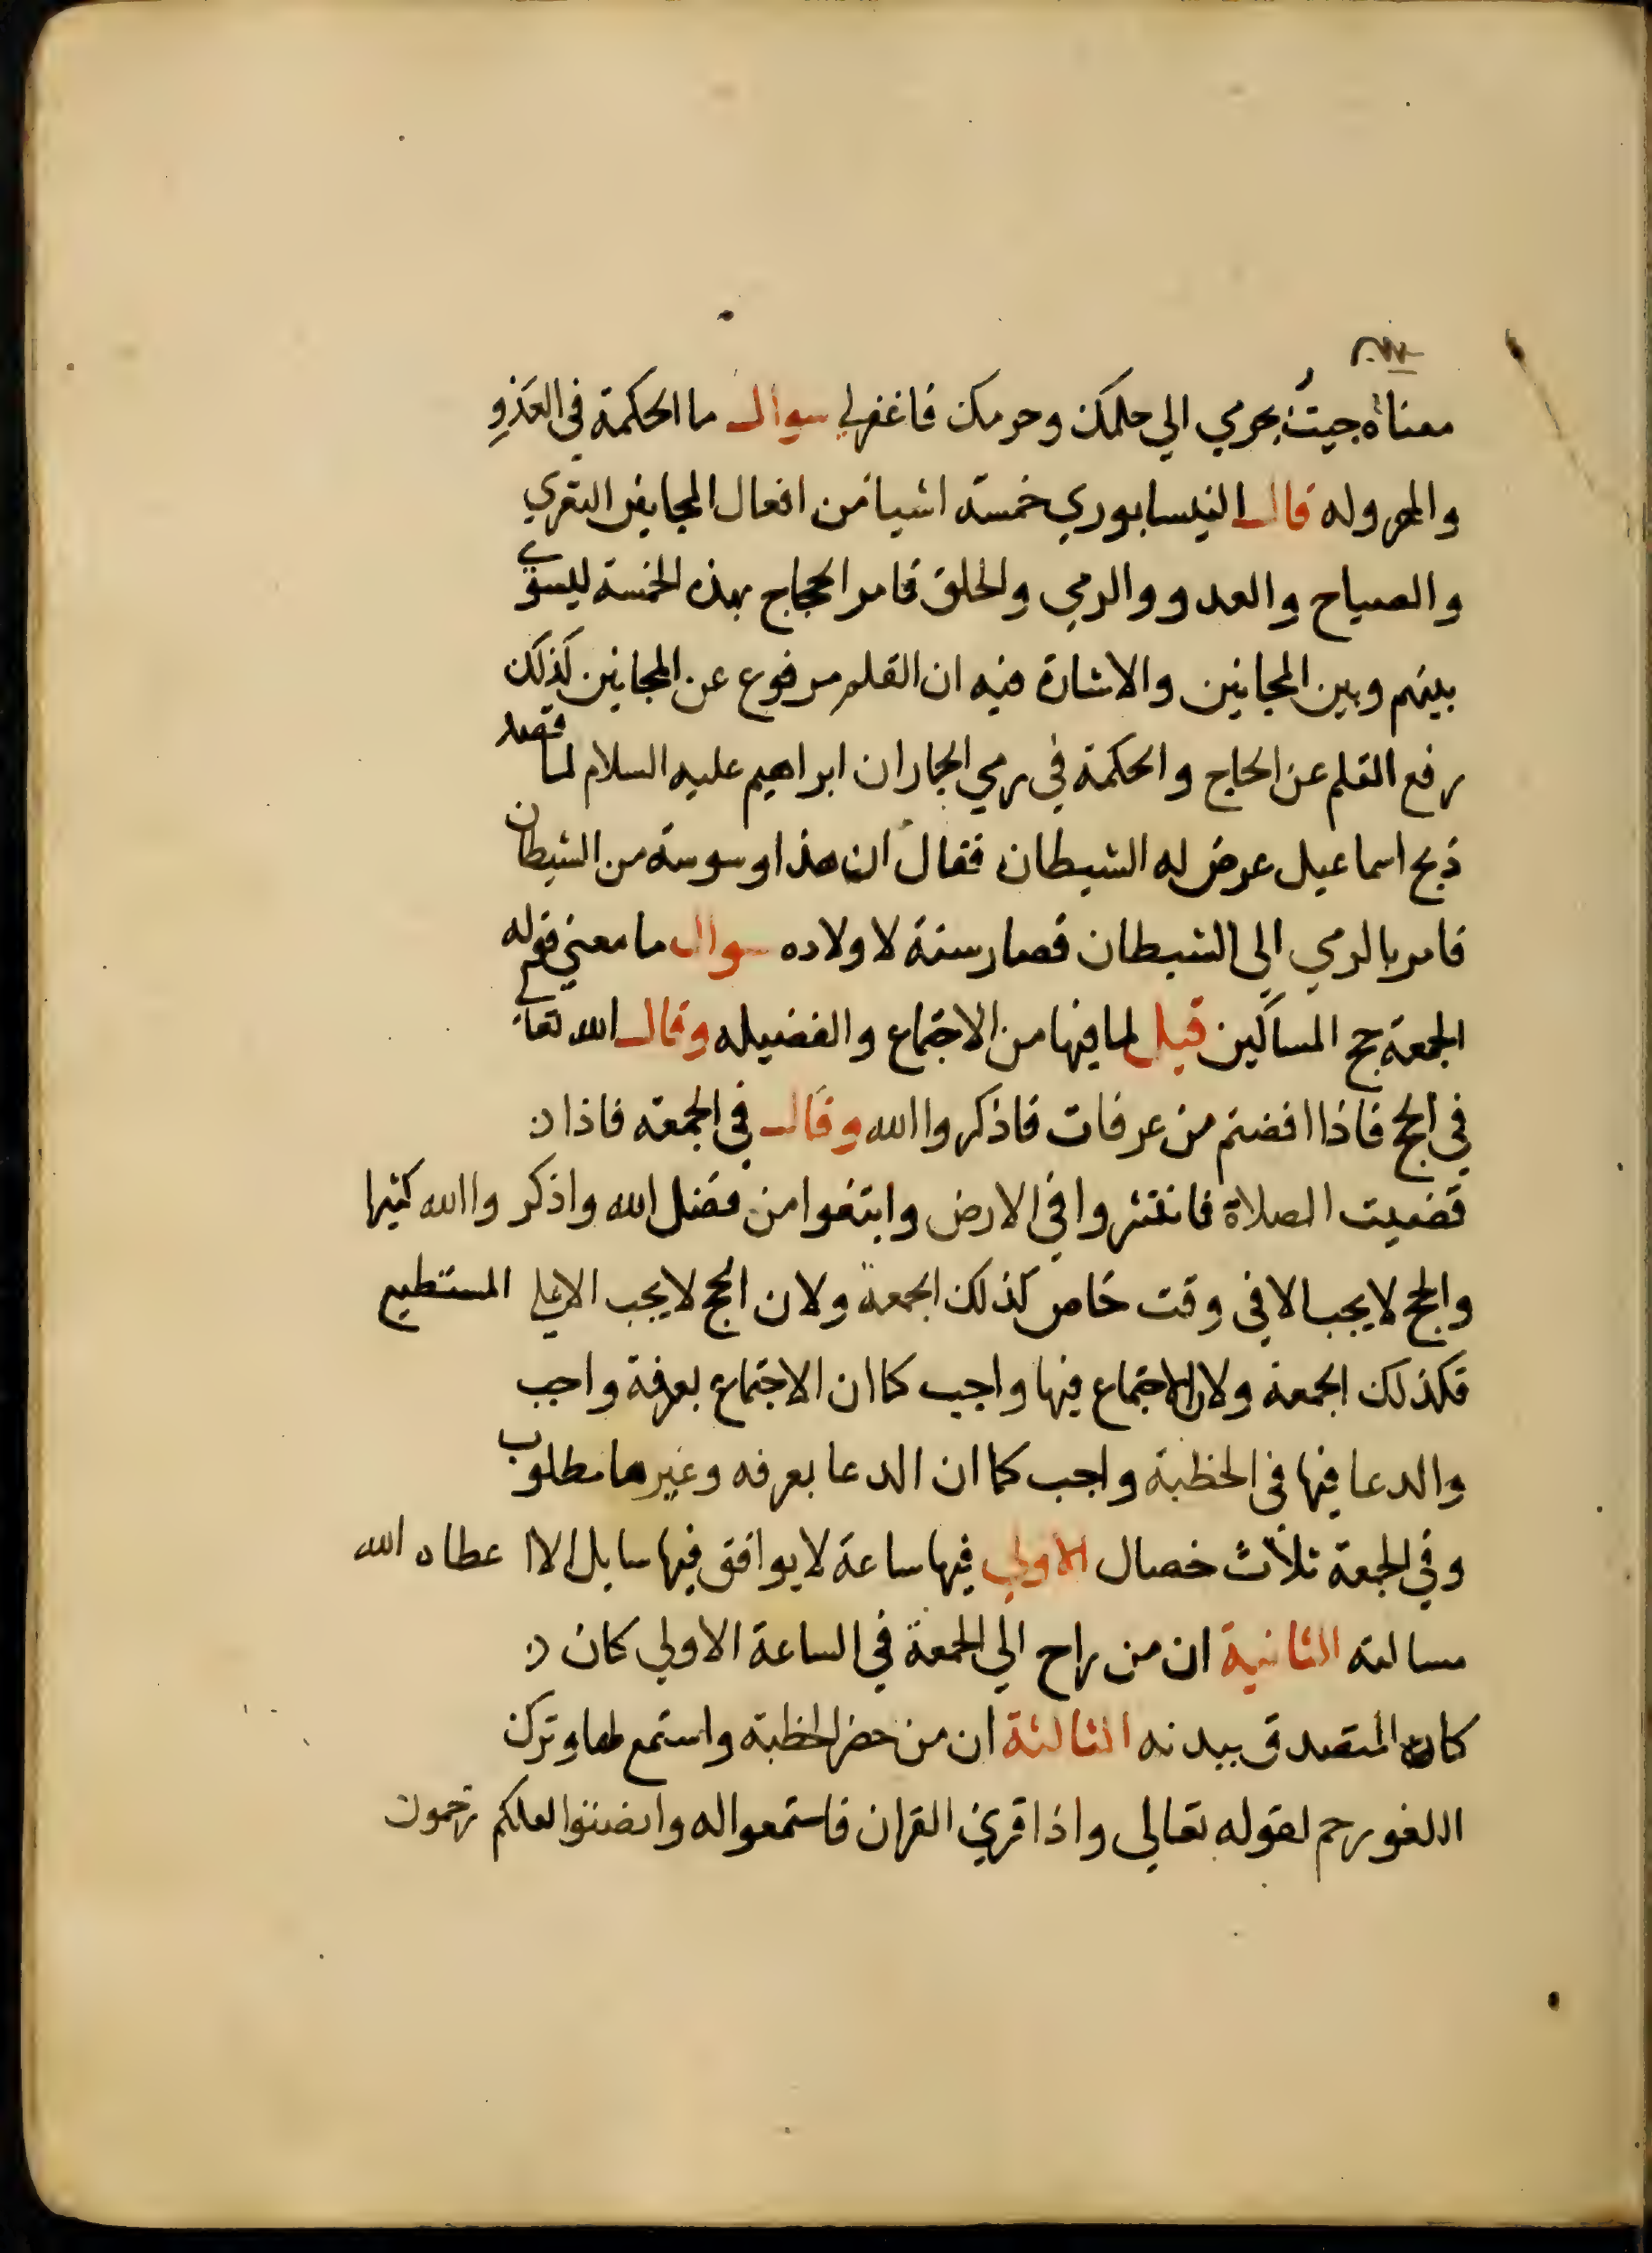 معناه جيتُ بجرمي الي حلمك وحرمك فاغفرلي سوال ما الحكمة في العَدْوِ
والهروله قال النيسابوري خمسة اشيا من افعال المجانين التعري
والصياح والعدو والرمي والحلق فامر الحجاج بهذه الخمسة ليسوي
بينهم وبين المجانين والاشارة فيه ان القلم مرفوع عن المجانين كذلك
رفع القلم عن الحاج والحكمة في رمي الجمار ان ابراهيم عليه السلام لما قصد
ذبح اسماعيل عرض له الشيطان فقال ان هذا وسوسة من الشيطان
فامر بالرمي الي الشيطان فصار سنة لاولاده سوال ما معني قوله
الجمعة حج المساكين قيل لما فيها من الاجتماع والفضيله وقال الله تعالي
في الحج فاذا افضتم من عرفات فاذكروا الله وقال في الجمعة فاذا
قضيت الصلاة فانتشروا في الارض وابتغوا من فضل الله واذكروا الله كثيرا
والحج لا يجب الا في وقت خاص كذلك الجمعة ولان الحج لا يجب الا علي المستطيع
فكذلك الجمعة ولان الاجتماع فيها واجب كما ان الاجتماع بعرفة واجب
والدعا فيها في الخطبة واجب كما ان الدعا بعرفه وغيرها مطلوب
وفي الجمعة ثلاث خصال الاولي فيها ساعة لا يوافق فيها سايل الا اعطاه الله
مسالته الثانية ان من راح الي الجمعة في الساعة الاولي كان
كان المتصدق ببدنه الثالثة ان من حضر الخطبة واستمع لها وترك
اللغو رحم لقوله تعالي واذا قري القران فاستمعوا له وانصتوا لعلكم ترحمون